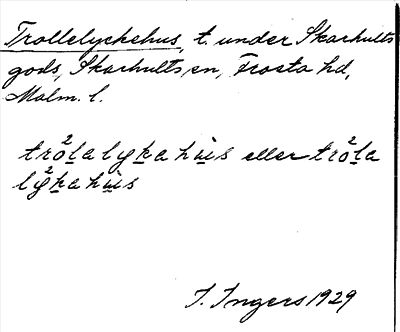 Trollelyckehus, t. under Skarhults
gods, Skarhults sn, Frosta hd,
Malm. l.
trò²lalykahùis eller trò²la
lỳ²kahùis
I. Ingers 1929